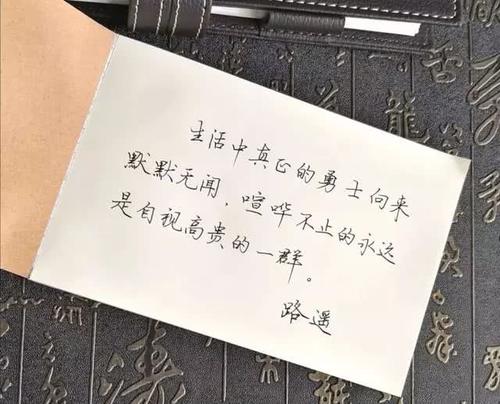 生活中真正的勇士向来
默默无闻，喧哗不止的永远
是自视高贵的一群。
路遥